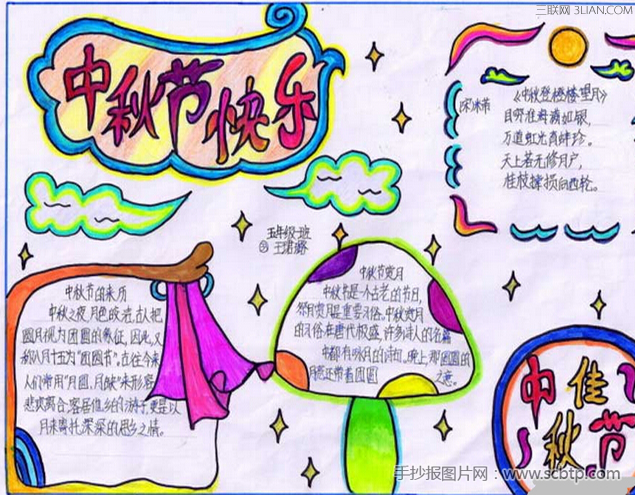 三联网 3LIAN.COM
中秋节快乐
《中秋登楼望月》
目穷淮海满如银,
万道虹光育蚌珍。
天上若无修月户,
桂枝撑损向西轮。
五年级一班
中秋节的来历
中秋之夜,月色皎洁,古人把
圆月视为团圆的象征,因此,又
称八月十五为“团圆节”。古往今来,
人们常用“月圆、月缺”来形容
悲欢离合,客居他乡的游子,更是以
月来寄托深深的思乡之情。
中秋节赏月
中秋节是一个古老的节日,
祭月赏月是重要习俗。中秋赏月
的习俗在唐代极盛,许多诗人的名篇
中都有咏月的诗句,晚上,那圆圆的
月亮还带着团圆
之意。
中秋佳节
手抄报图片网:www.scbtp.com